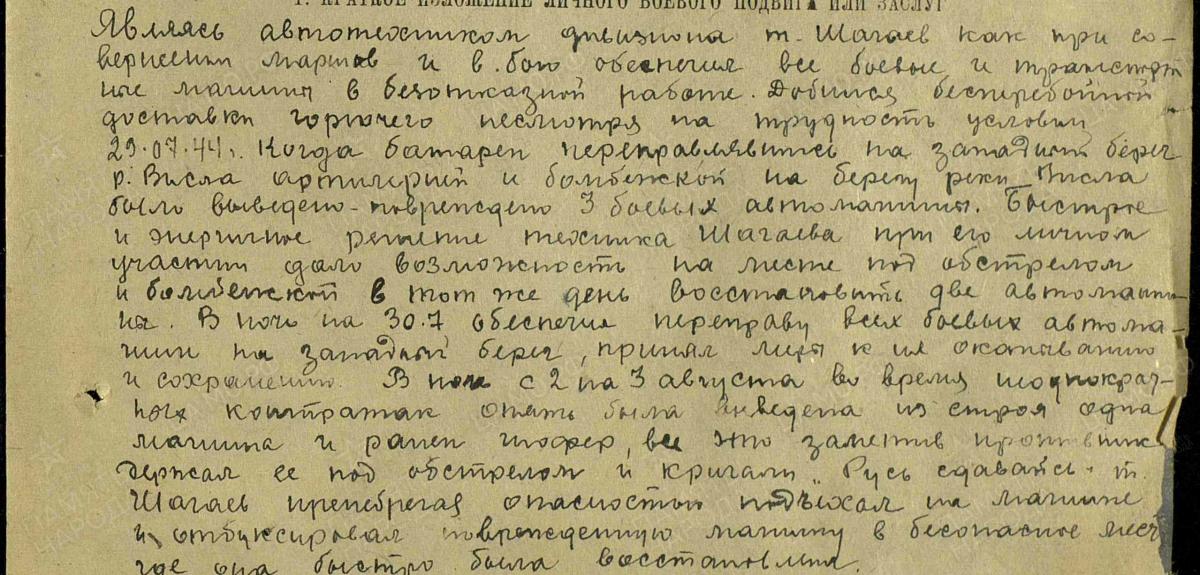 I. КРАТКОЕ ИЗЛОЖЕНИЕ ЛИЧНОГО БОЕВОГО ПОДВИГА ИЛИ ЗАСЛУГ
Являясь автотехником дивизиона т. Шагаев как при со-
вершении маршев и в бою обеспечил все боевые и транспорт
ные машины в безотказной работе. Добился бесперебойной
доставки горючего несмотря на трудность условий
29.07.44г. Когда батареи переправлявшись на западный берег
р. Висла артилерией и бомбежкой на берегу реки Висла
было выведено-повреждено 3 боевых автомашины. Быстрое
и энергичное решение техника Шагаева при его личном
участии дало возможность на месте под обстрелом
и бомбежкой в тот же день восстановить две автомаши-
ны. В ночь на 30.7 обеспечил переправу всех боевых автома-
шин на западный берег, принял меры к их окапыванию
и сохранению. В ночь с 2 на 3 августа во время неоднократ-
ных контратак опять была выведена из строя одна
машина и ранен шофер, все это заметив противник
держал ее под обстрелом и кричали „Русь сдавайсь. т.
Шагаев пренебрегая опасностью подъехал на машине
и отбуксировал поврежденную машину в безопасное место
где она быстро была восстановлена.